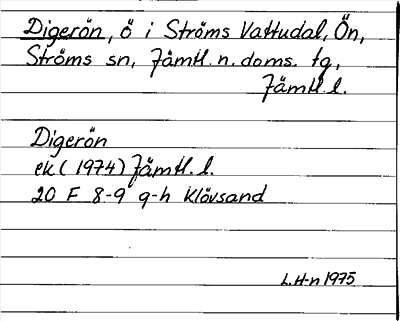 Digerön, ö i Ströms Vattudal, Ön,
Ströms sn, Jämtl. n. doms. tg,
Jämtl. l.
Digerön
ek (1974) Jämtl. l.
20 F 8-9 g-h Klövsand
L. H-n 1975